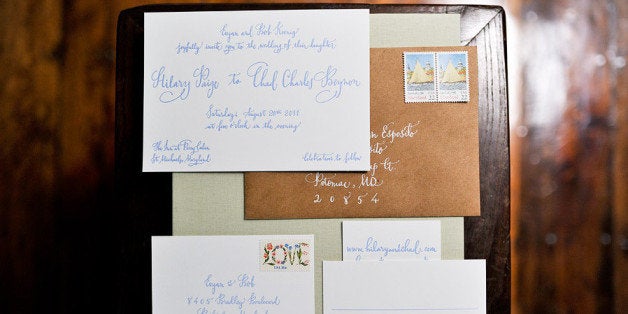 Logan and Bob Konig
joyfully invite you to the wedding of their daughter
Hilary Paige to Chad Charles Beynon
Saturday, August 20th 2011
at five o'clock in the evening
The Inn at Perry Cabin
St. Michaels, Maryland
Celebration to follow
Esposito
Ct.
Potomac, MD
20854
LOVE
Logan & Bob
8405 Bradley Boulevard
www.hilaryandchad.com